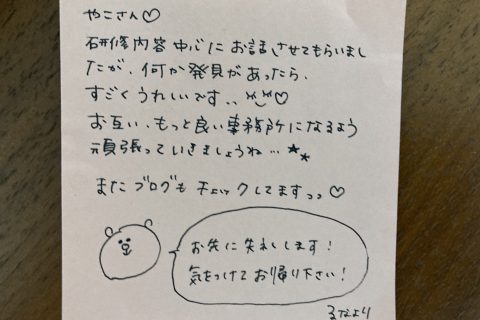 やこさん♡
研修内容中心にお話させてもらいまし
たが、何か発見があったら、
すごくうれしいです、、♡
お互い、もっと良い事務所になるよう
頑張っていきましょうね…★★
またブログもチェックしてますっっ♡
お先に失礼します!
気をつけてお帰り下さい!
るなより